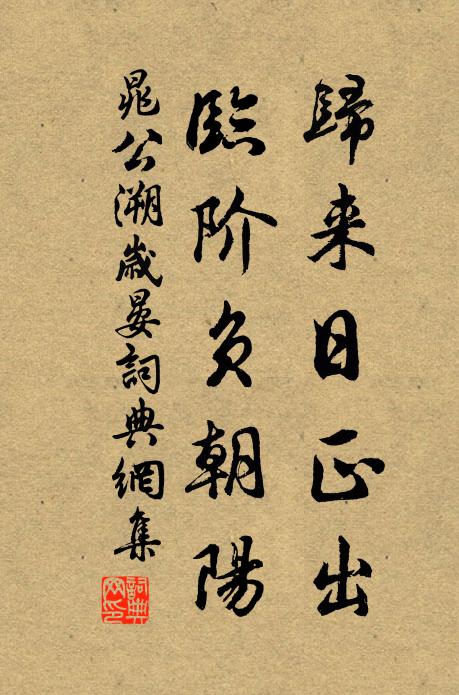 歸来日正出
臨阶负朝陽
晁公溯歲晏詞典網集
詞典网印